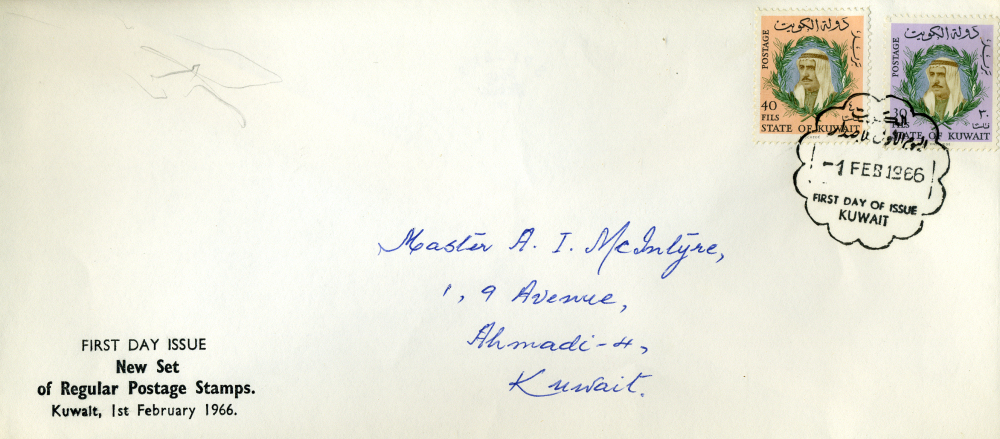 دولة الكويت
POSTAGE
40
FILS
STATE OF KUWAIT
دولة الكويت
POSTAGE
30
FILS
٣٠
فلسا
STATE OF KUWAIT
الكويت
-1 FEB 1966
FIRST DAY OF ISSUE
KUWAIT
Master A. I. McIntyre,
1, 9 Avenue,
Ahmadi-4,
Kuwait.
FIRST DAY ISSUE
New Set
of Regular Postage Stamps.
Kuwait, 1st February 1966.